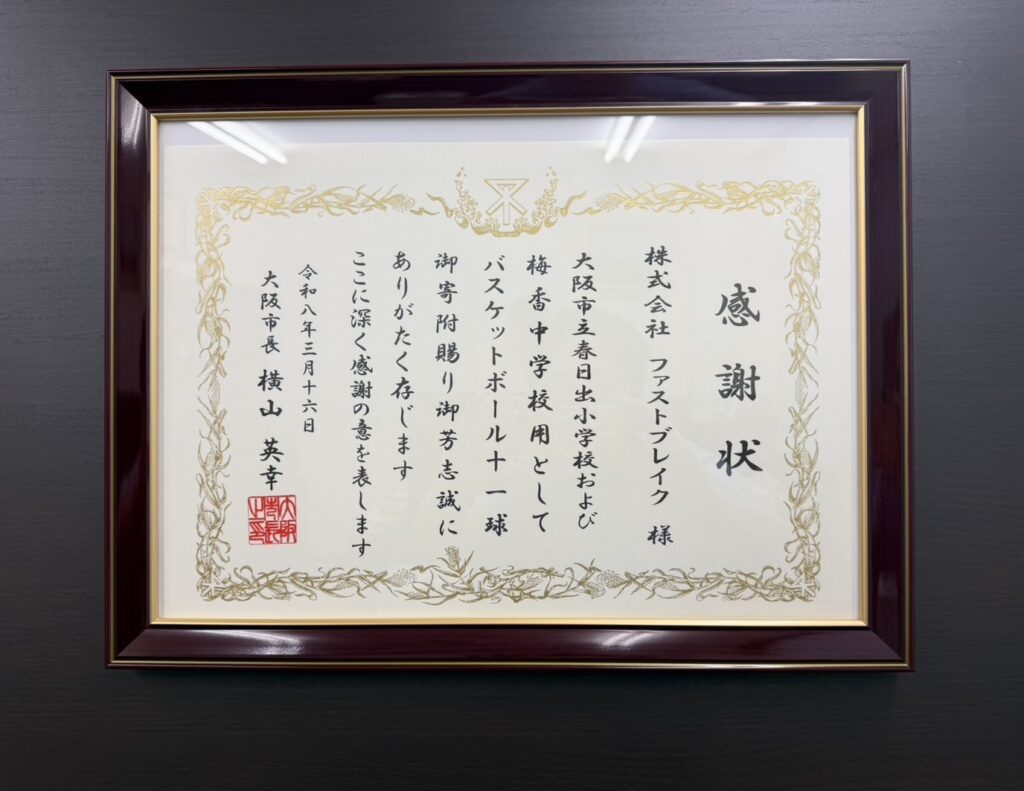 感謝状
株式会社 ファストブレイク 様
大阪市立春日出小学校および
梅香中学校用として
バスケットボール十一球
御寄附賜り御芳志誠に
ありがたく存じます
ここに深く感謝の意を表します
令和八年三月十六日
大阪市長 横山 英幸
大阪
市長
之印